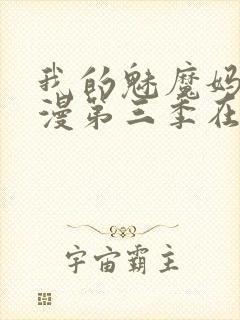 我的魅魔妈
漫第三季在
宇宙霸主